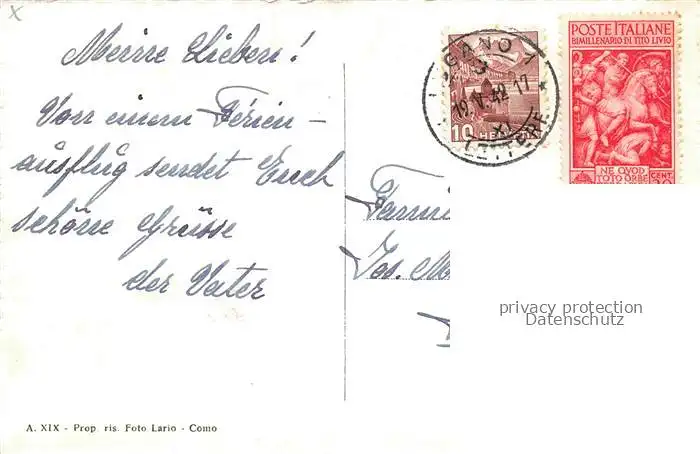 Meine Lieben!
Von einem Ferien-
ausflug sendet Euch
schöne Grüsse
der Vater
10 HE
12.V.42 17
LETTERE
POSTE ITALIANE
BIMILLENARIO DI TITO LIVIO
NE QVOD
TOTO ORBE
CENT.
Jos. M
privacy protection
Datenschutz
A. XIX - Prop. ris. Foto Lario - Como